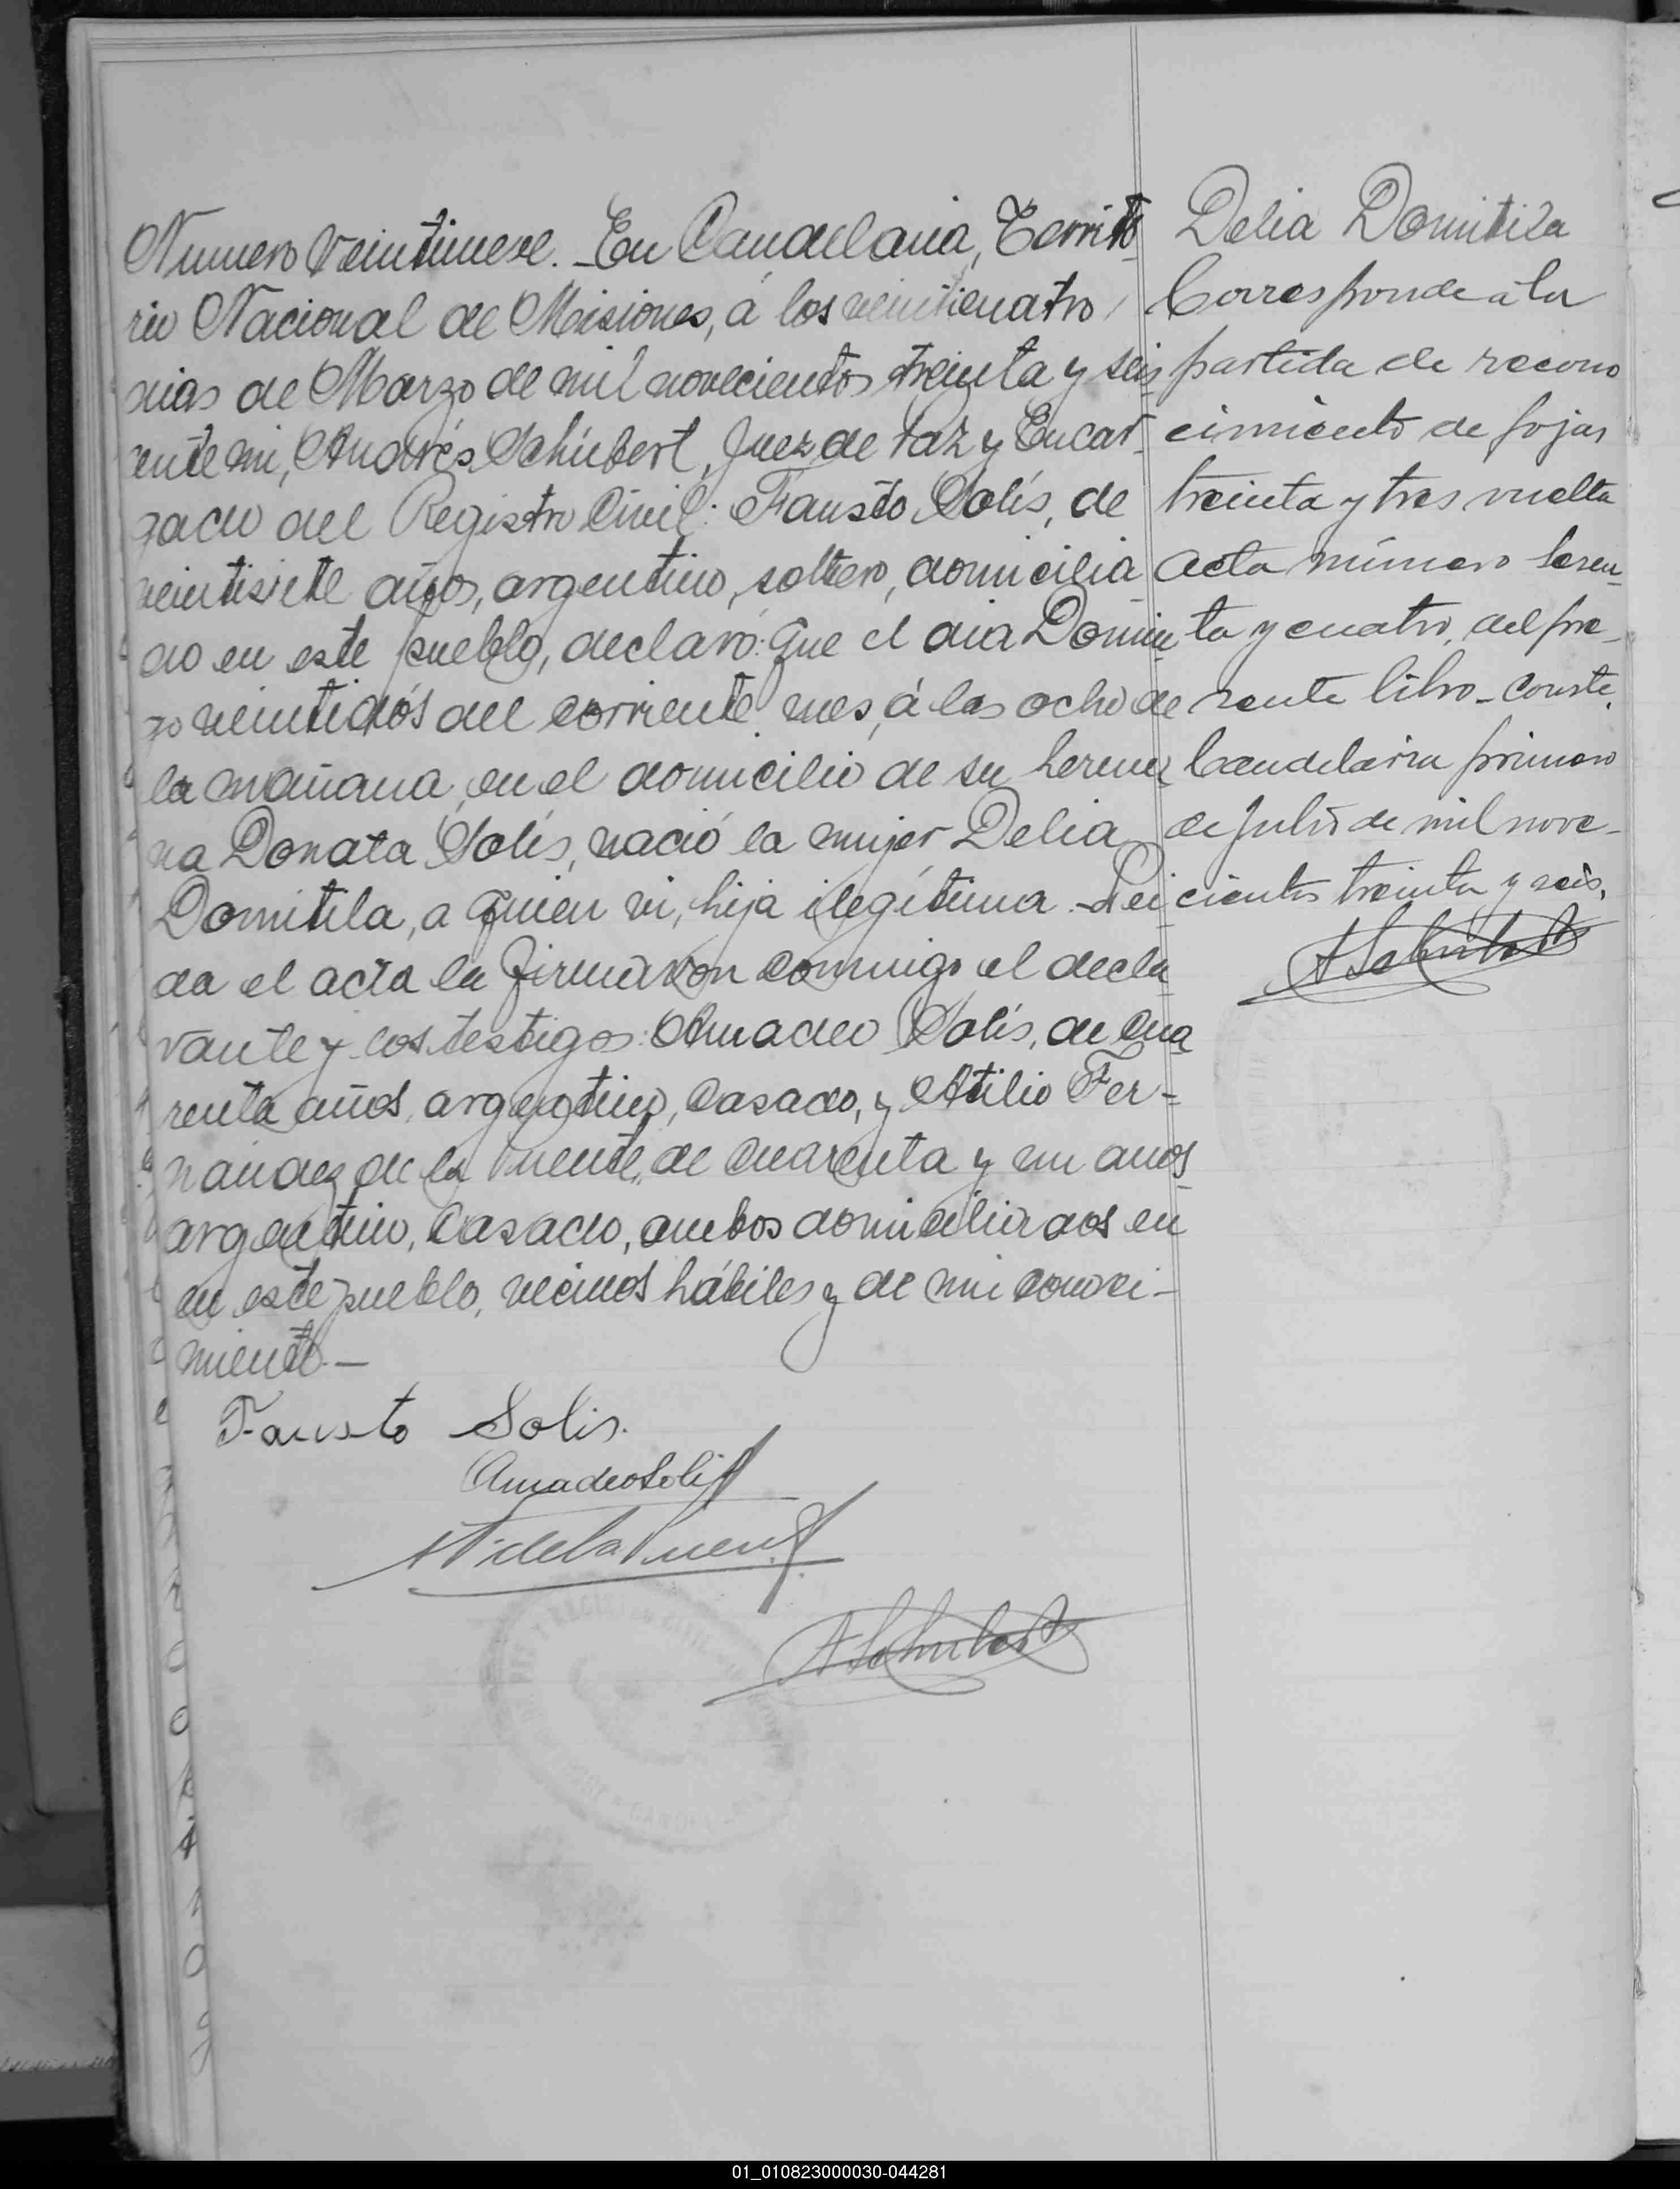 Numero Veintinueve. - En Candelaria, Territo-
rio Nacional de Misiones, á los veinticuatro
dias de Marzo de mil novecientos treinta y seis
ante mi, Andrés Schubert, Juez de Paz y Encar-
gado del Registro Civil: Fausto Solís, de
veintisiete años, argentino, soltero, domicilia-
do en este pueblo, declaró: Que el dia Domin-
go veintidós del corriente mes, á las ocho de
la mañana, en el domicilio de su herma-
na Donata Solís, nació la mujer Delia
Domitila, a quien vi, hija ilegítima. - Lei-
da el acta la firmaron conmigo el decla-
rante y los testigos: Amadeo Solís, de cua-
renta años, argentino, casado, y Atilio Fer-
nandez de la Puente, de cuarenta y un anos
argentino, casado, ambos domiciliados en
en este pueblo, vecinos hábiles y de mi conoci-
miento. -
Fausto Solis.
Amadeo Solis
A F de la Puente
ASchubert
Delia Domitila
Corresponde a la
partida de recono
cimiento de fojas
treinta y tres vuelta
acta número sesen-
ta y cuatro, del pre-
sente libro - Conste.
Candelaria primero
de Julio de mil nove-
cientos treinta y seis.
ASchubert
01_010823000030-044281